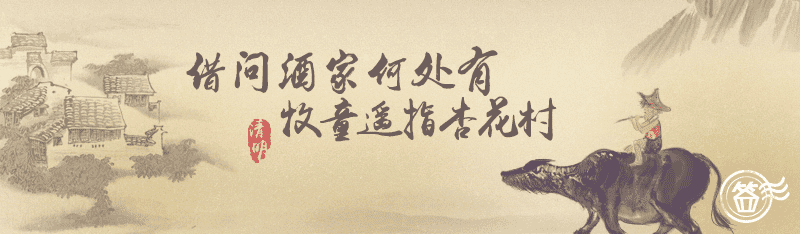 借问酒家何处有
牧童遥指杏花村
清明